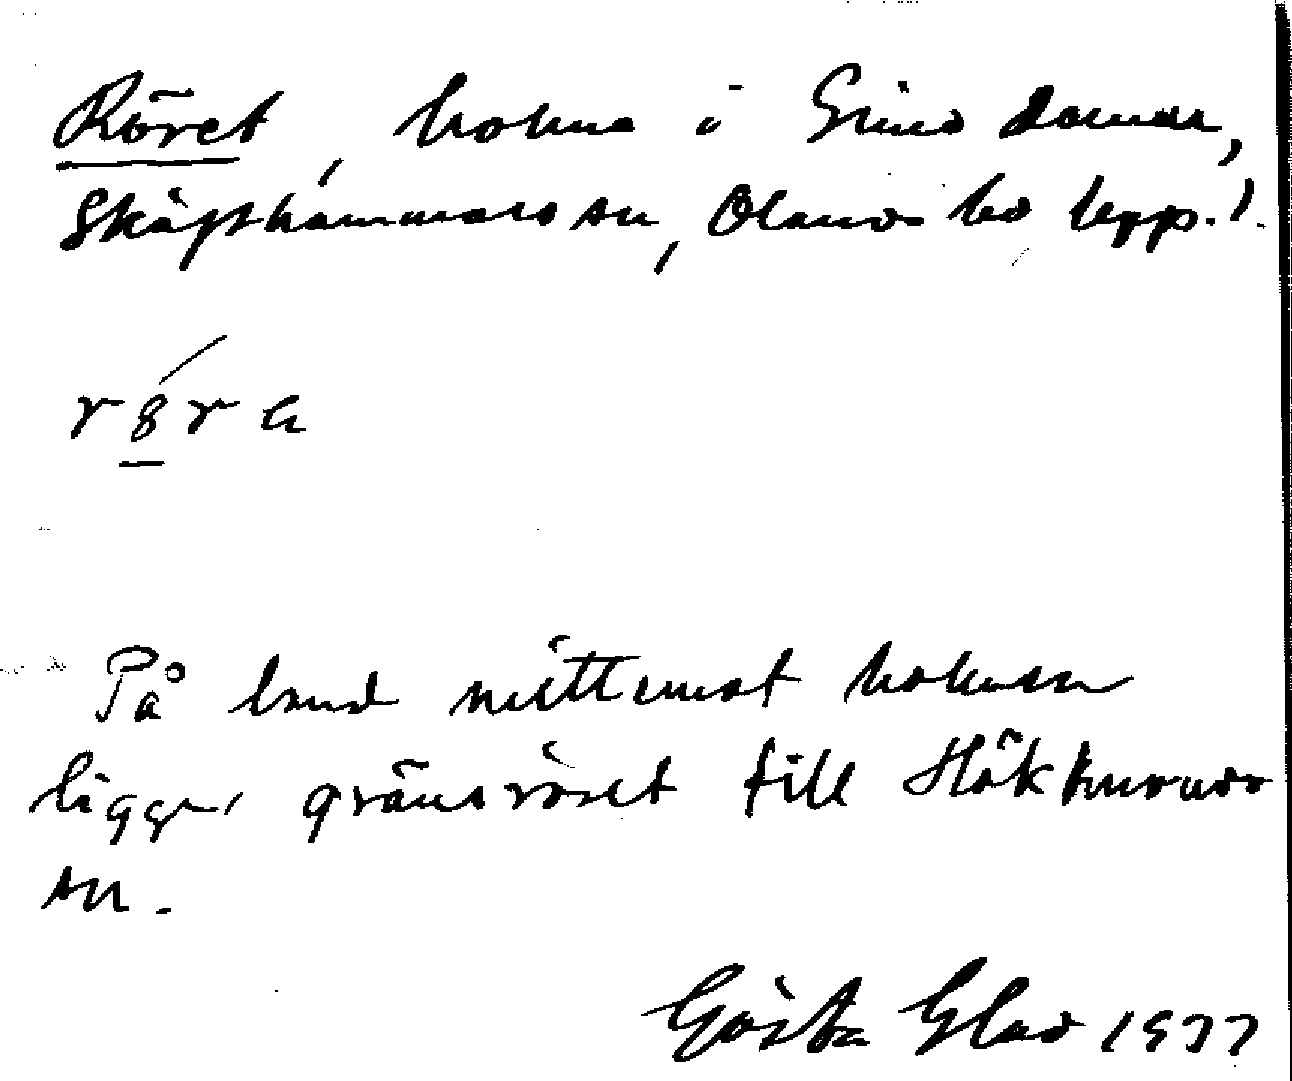 Röret, holme i Gimo damm,
Skäfthammars sn, Olands hd Uppl.
röra
På land mittemot holmen
ligger gränsröset till Hökhuvuds
sn.
Gösta Glad 1977